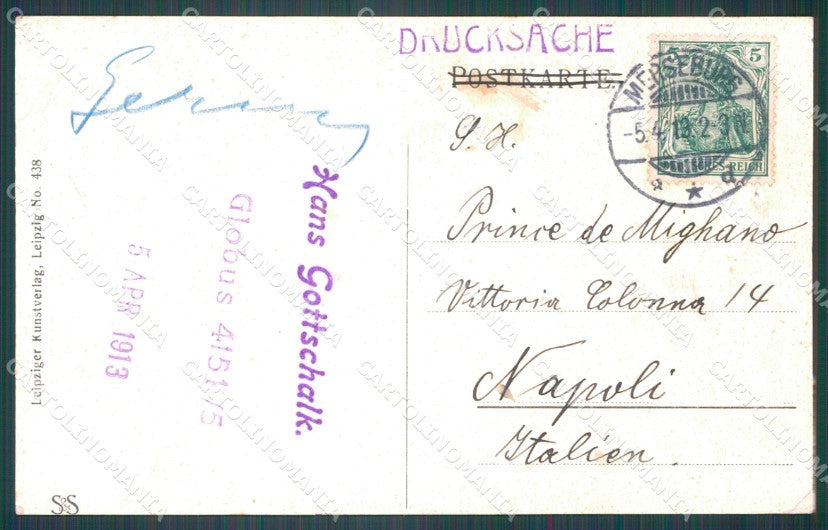 DRUCKSACHE
POSTKARTE
MERSEBURG
-5.4.13.2-3
a
5
S. H.
Prince de Mighano
Vittoria Colonna 14
Napoli
Italien.
Hans Gottschalk.
Globus 415175
5 APR 1913
Leipziger Kunstverlag, Leipzig No. 438
S&S
CARTOLINOMANIA